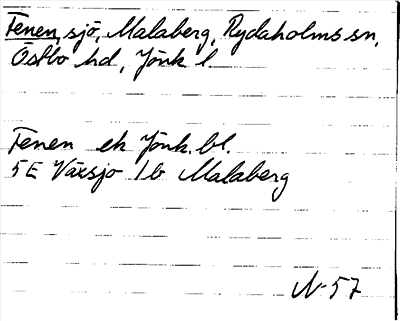 Fenen, sjö, Malaberg, Rydaholms sn,
Östbo hd, Jönk l.
Fenen ek Jönk. bl.
5E Växsjo 1b Malaberg
N-57